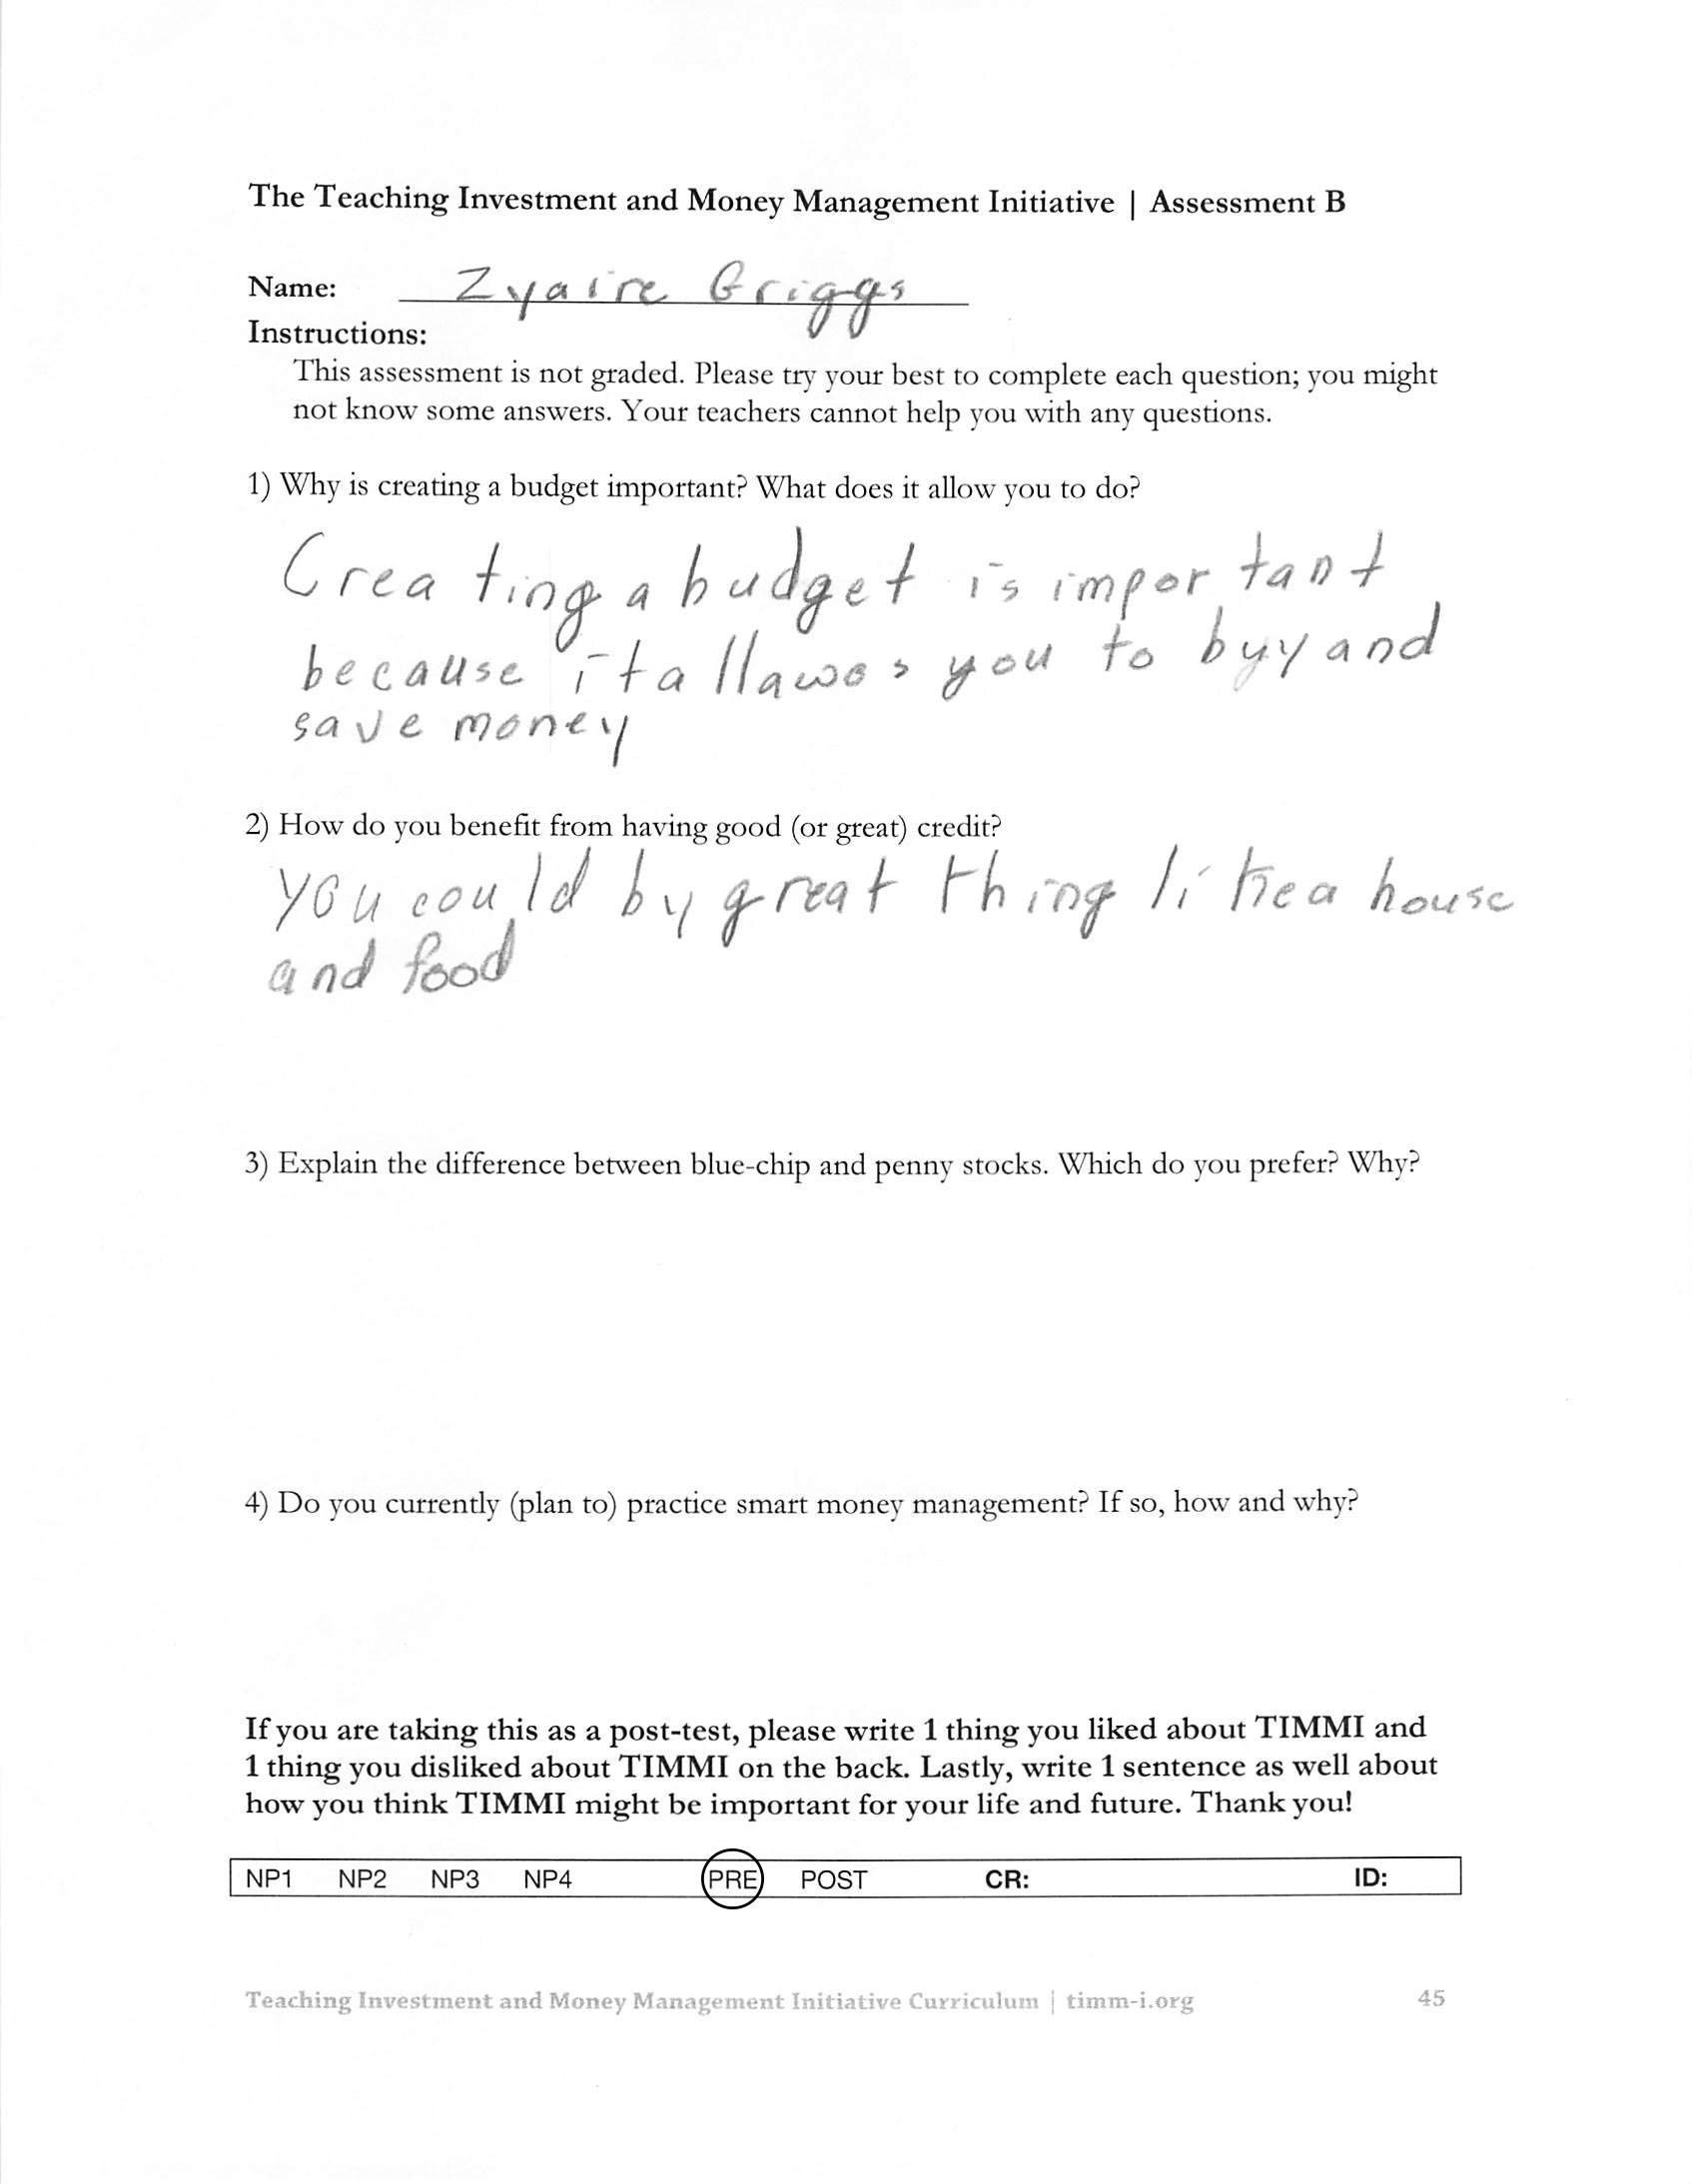 The Teaching Investment and Money Management Initiative | Assessment B
Name: Zyaire Griggs
Instructions:
This assessment is not graded. Please try your best to complete each question; you might
not know some answers. Your teachers cannot help you with any questions.
1) Why is creating a budget important? What does it allow you to do?
Creating a budget is important
because it allawos you to byy and
save money
2) How do you benefit from having good (or great) credit?
you could by great thing like a house
and food
3) Explain the difference between blue-chip and penny stocks. Which do you prefer? Why?
4) Do you currently (plan to) practice smart money management? If so, how and why?
If you are taking this as a post-test, please write 1 thing you liked about TIMMI and
1 thing you disliked about TIMMI on the back. Lastly, write 1 sentence as well about
how you think TIMMI might be important for your life and future. Thank you!
NP1 NP2 NP3 NP4 PRE POST CR: ID:
Teaching Investment and Money Management Initiative Curriculum | timm-i.org 45